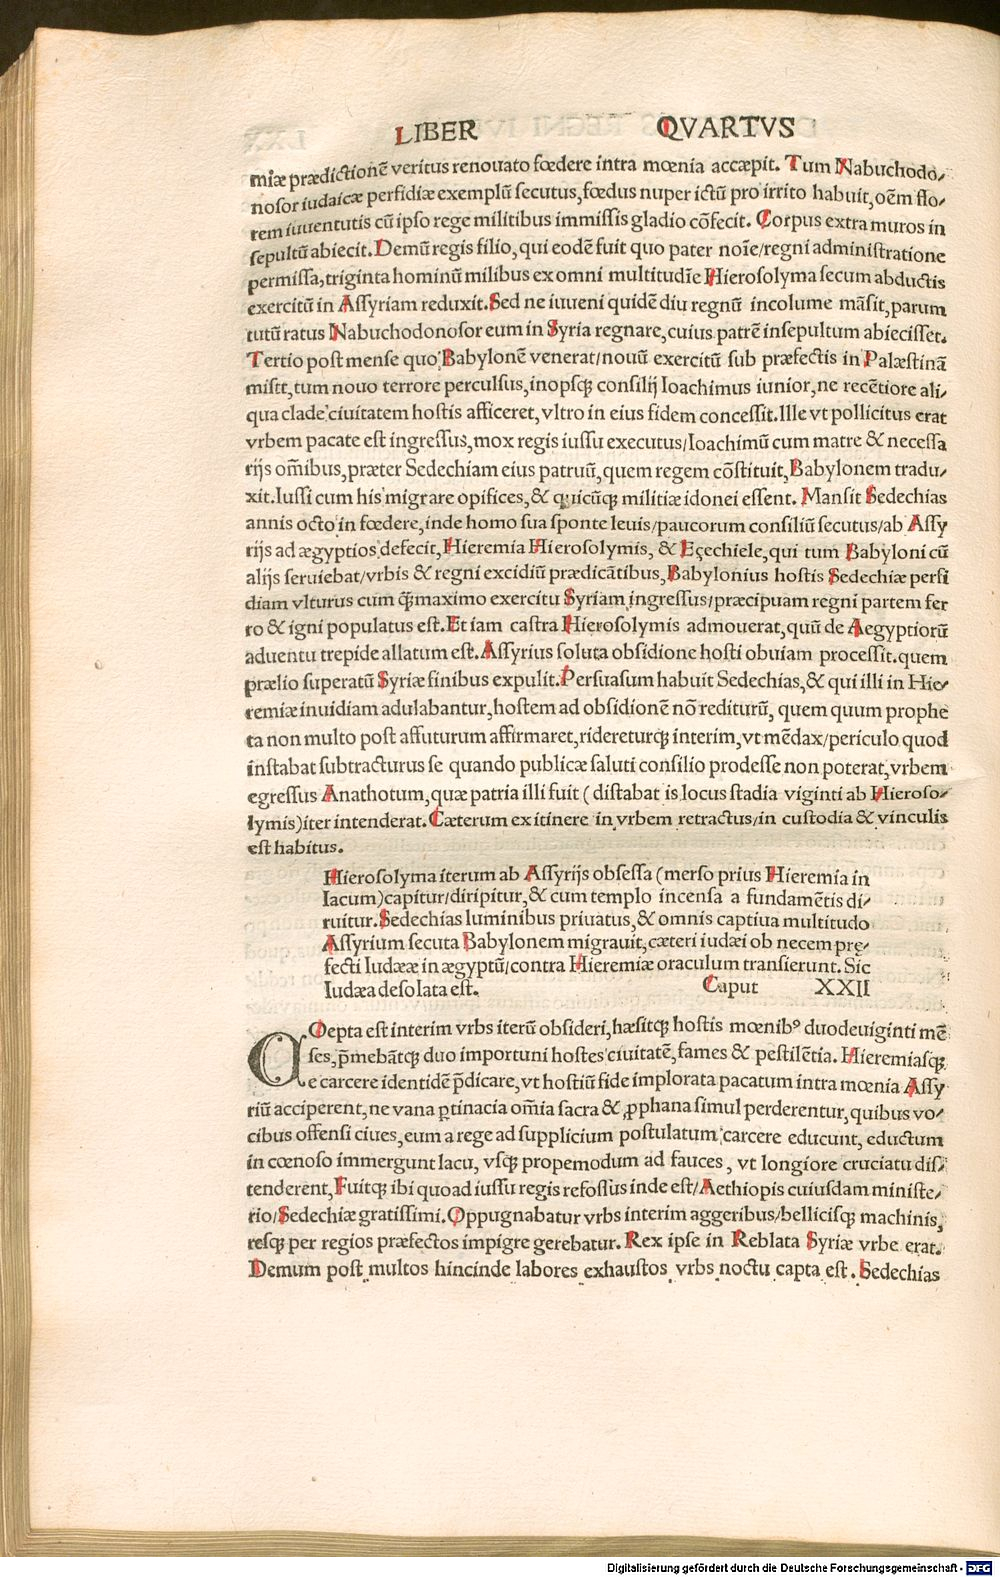 LIBER QVARTVS
miæ prædictionē veritus renouato fœdere intra mœnia accæpit. Tum Nabuchodo⸗
nosor iudaicæ perfidiæ exemplū secutus, fœdus nuper ictū pro irrito habuit, oēm flo⸗
rem iuuentutis cū ipso rege militibus immissis gladio cōfecit. Corpus extra muros in
sepultū abiecit. Demū regis filio, qui eodē fuit quo pater noīe/regni administratione
permissa, triginta hominū milibus ex omni multitudīe Hierosolyma secum abductis
exercitū in Assyriam reduxit. Sed ne iuueni quidē diu regnū incolume māsit, parum
tutū ratus Nabuchodonosor eum in Syria regnare, cuius patrē insepultum abiecisset.
Tertio post mense quo Babylonē venerat/nouū exercitū sub præfectis in Palæstinā
misit, tum nouo terrore perculsus, inopsq; consilij Ioachimus iunior, ne recētiore ali⸗
qua clade ciuitatem hostis afficeret, vltro in eius fidem concessit. Ille vt pollicitus erat
vrbem pacate est ingressus, mox regis iussu executus/Ioachimū cum matre & necessa
rijs om̄ibus, præter Sedechiam eius patruū, quem regem cōstituit, Babylonem tradu⸗
xit. Iussi cum his migrare opifices, & quicūq; militiæ idonei essent. Mansit Sedechias
annis octo in fœdere, inde homo sua sponte leuis/paucorum consiliū secutus/ab Assy
rijs ad ægyptios defecit, Hieremia Hierosolymis, & Eȩechiele, qui tum Babyloni cū
alijs seruiebat/vrbis & regni excidiū prædicātibus, Babylonius hostis Sedechiæ persi
diam vlturus cum q̄maximo exercitu Syriam ingressus/præcipuam regni partem fer
ro & igni populatus est. Et iam castra Hierosolymis admouerat, quū de Aegyptiorū
aduentu trepide allatum est. Assyrius soluta obsidione hosti obuiam processit. quem
prælio superatū Syriæ finibus expulit. Persuasum habuit Sedechias, & qui illi in Hie⸗
remiæ inuidiam adulabantur, hostem ad obsidionē nō rediturū, quem quum prophe
ta non multo post affuturum affirmaret, ridereturq; interim, vt mēdax/periculo quod
instabat subtracturus se quando publicæ saluti consilio prodesse non poterat, vrbem
egressus Anathotum, quæ patria illi fuit ( distabat is locus stadia viginti ab Hieroso⸗
lymis) iter intenderat. Cæterum ex itinere in vrbem retractus/in custodia & vinculis
est habitus.
Hierosolyma iterum ab Assyrijs obsessa (merso prius Hieremia in
lacum) capitur/diripitur, & cum templo incensa a fundamētis di⸗
ruitur. Sedechias luminibus priuatus, & omnis captiua multitudo
Assyrium secuta Babylonem migrauit, cæteri iudæi ob necem prę⸗
fecti Iudææ in ægyptū/contra Hieremiæ oraculum transierunt. Sic
Iudæa desolata est. Caput XXII
COepta est interim vrbs iterū obsideri, hæsitq; hostis mœnibꝰ duodeuiginti mē
ses, p̄mebātq; duo importuni hostes ciuitatē, fames & pestilētia. Hieremiasq;
e carcere identidē p̄dicare, vt hostiū fide implorata pacatum intra mœnia Assy
riū acciperent, ne vana ꝑtinacia om̄ia sacra & ꝓphana simul perderentur, quibus vo⸗
cibus offensi ciues, eum a rege ad supplicium postulatum carcere educunt, eductum
in cœnoso immergunt lacu, vsq; propemodum ad fauces, vt longiore cruciatu dis⸗
tenderent, Fuitq; ibi quoad iussu regis refossus inde est/Aethiopis cuiusdam ministe⸗
rio/Sedechiæ gratissimi. Oppugnabatur vrbs interim aggeribus/bellicisq; machinis,
resq; per regios præfectos impigre gerebatur. Rex ipse in Reblata Syriæ vrbe erat.
Demum post multos hincinde labores exhaustos vrbs noctu capta est. Sedechias
Digitalisierung gefördert durch die Deutsche Forschungsgemeinschaft - DFG